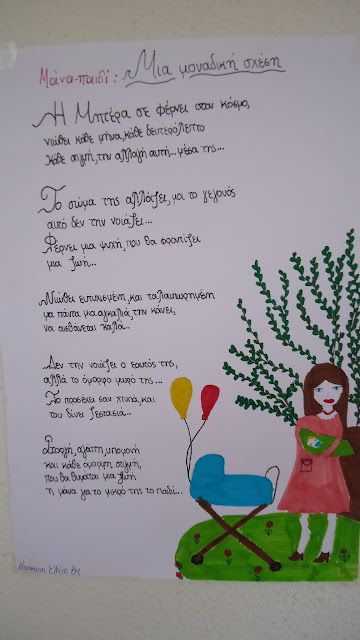 Μάνα-παιδί: Μια μοναδική σχέση
Η Μητέρα σε φέρνει στον κόσμο,
νιώθει κάθε μήνα, κάθε δευτερόλεπτο
κάθε στιγμή, την αλλαγή αυτή... μέσα της...
Το σώμα της αλλάζει, μα το γεγονός
αυτό δεν την νοιάζει...
Φέρνει μια ψυχή, που θα φροντίζει
μια ζωή...
Νιώθει ευτυχισμένη, και ταλαιπωρημένη
μα πάντα μια αγκαλιά, την κάνει,
να αισθάνεται καλά...
Δεν την νοιάζει ο εαυτός της,
αλλά το όμορφο μωρό της...
Το προσέχει σαν χτυπά, και
του δίνει ζεστασιά...
Στοργή, αγάπη, υπομονή
και κάθε όμορφη στιγμή,
που θα θυμάται μια ζωή
η μάνα για το μικρό της το παιδί...
Ελένη Β4